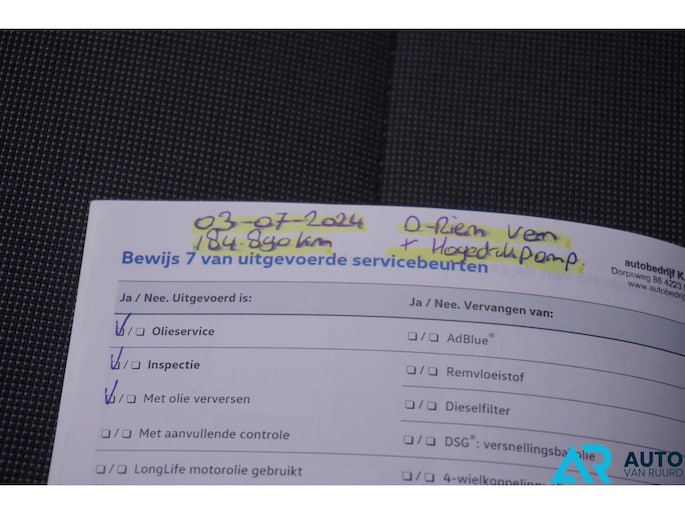 03-07-2024
184.890km
D-Riem Verv
+ Hogedrukpomp.
Bewijs 7 van uitgevoerde servicebeurten
autobedrijf K.
Dorpsweg 88 4223
www.autobedrijf
Ja / Nee. Uitgevoerd is:
Ja / Nee. Vervangen van:
☑/☐ Olieservice
☑/☐ Inspectie
☑/☐ Met olie verversen
☐/☐ Met aanvullende controle
☐/☐ LongLife motorolie gebruikt
☐/☐ AdBlue®
☐/☐ Remvloeistof
☐/☐ Dieselfilter
☐/☐ DSG®: versnellingsbakolie
☐/☐ 4-wielkoppeling:
AR AUTO
VAN RUURD